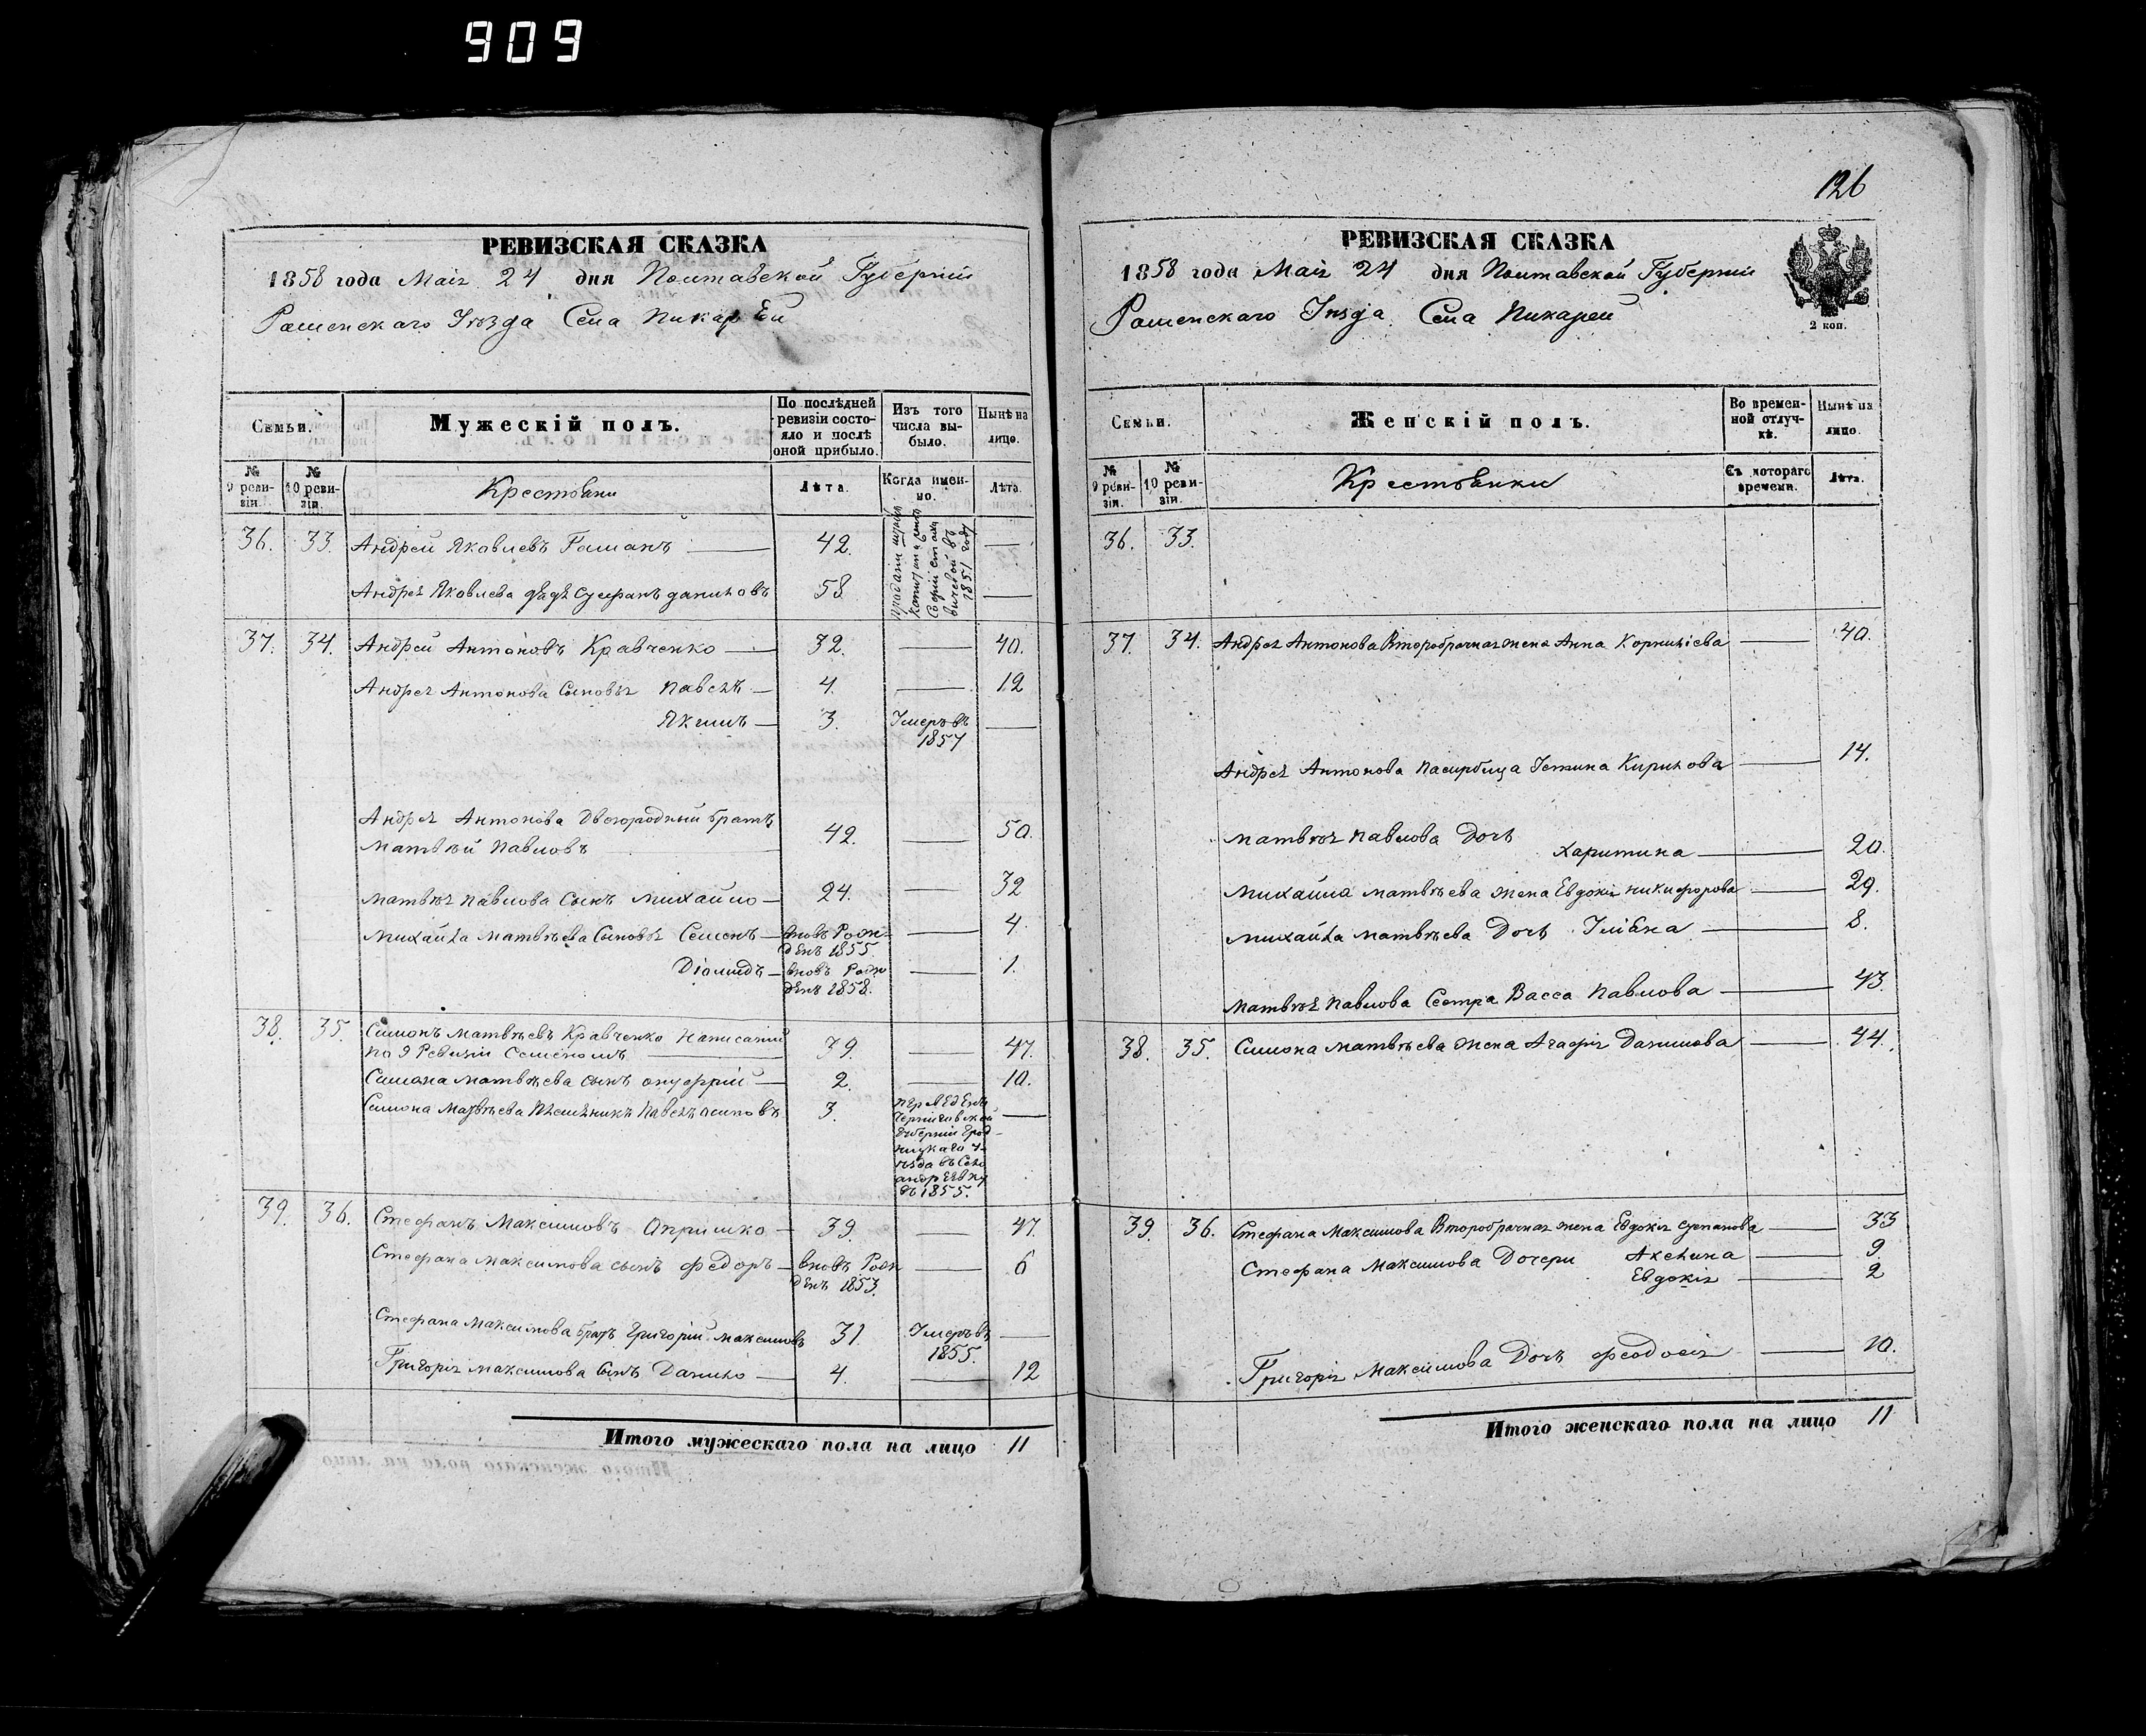 909
РЕВИЗСКАЯ СКАЗКА
1858 года Маія 24 дня Полтавской Губерніи
Роменскаго Уѣзда Села Пикарей
Семьи.
Мужескій полъ.
По послѣдней ревизіи состояло и послѣ оной прибыло.
Изъ того числа выбыло.
Нынѣ на лицо.
№ 9 ревизіи.
№ 10 ревизіи.
Крестьяни
Лѣта.
Когда именно.
Лѣта.
36. 33. Андрей Яковлевъ 42. —
Андрея Яковлева дядя даниловъ 58 —
въ 1851 году
37. 34. Андрей Антоновъ Кравченко — 32. — 40.
Андрея Антонова Сыновья Павелъ — 4. — 12
Якимъ — 3. Умеръ въ 1857 —
Андрея Антонова Двоюродный братъ
Матвѣй Павловъ 42. — 50.
Матвѣя Павлова Сынъ Михайло — 24. — 32
Михайла Матвѣева Сыновья Семенъ — вновь Рож-
денъ 1855 — 4.
Діомидъ — вновь Рож
денъ 1858. — 1.
38. 35. Симонъ Матвѣевъ Кравченко Написаній
по 9 Ревизіи Семеномъ — 39. — 47.
Симона Матвѣева сынъ онуфрій — 2. — 10.
Симона Матвѣева Племѣникъ Павелъ осиповъ 3. —
переведенъ
Черниговской
Губерніи Город-
ницкаго У-
ѣзда въ Село
андреевку
въ 1855.
39. 36. Стефанъ Максимовъ Опришко — 39. — 47.
Стефана Максимова сынъ федоръ — вновь Рож
денъ 1853. — 6
Стефана Максимова братъ Григорій Максимовъ 31 Умеръ въ
1855. —
Григорія Максимова Сынъ Данило — 4. — 12
Итого мужескаго пола на лицо 11
126
РЕВИЗСКАЯ СКАЗКА
1858 года Маія 24 дня Полтавской Губерніи
Роменскаго Уѣзда Села Пикарей
2 коп.
Семьи.
Женскій полъ.
Во временной отлучкѣ.
Нынѣ на лицо.
№ 9 ревизіи.
№ 10 ревизіи.
Крестьянки
Съ котораго времени.
Лѣта.
36. 33.
37. 34. Андрея Антонова Второбрачная жена Анна Корниліева — 40.
Андрея Антонова пасирбица Устина Кирилова — 14.
Матвѣя Павлова Дочь
Харитина — 20.
Михайла Матвѣева жена Евдокія никифорова — 29.
Михайла Матвѣева Дочь Уліяна — 8.
Матвѣя Павлова Сестра Васса Павлова — 43
38. 35. Симона Матвѣева жена Агафія Данилова — 44.
39. 36. Стефана Максимова Второбрачная жена Евдокія степанова — 33
Стефана Максимова Дочери Акелина — 9.
Евдокія — 2
Григорія Максимова Дочь феодосія — 10.
Итого женскаго пола на лицо 11